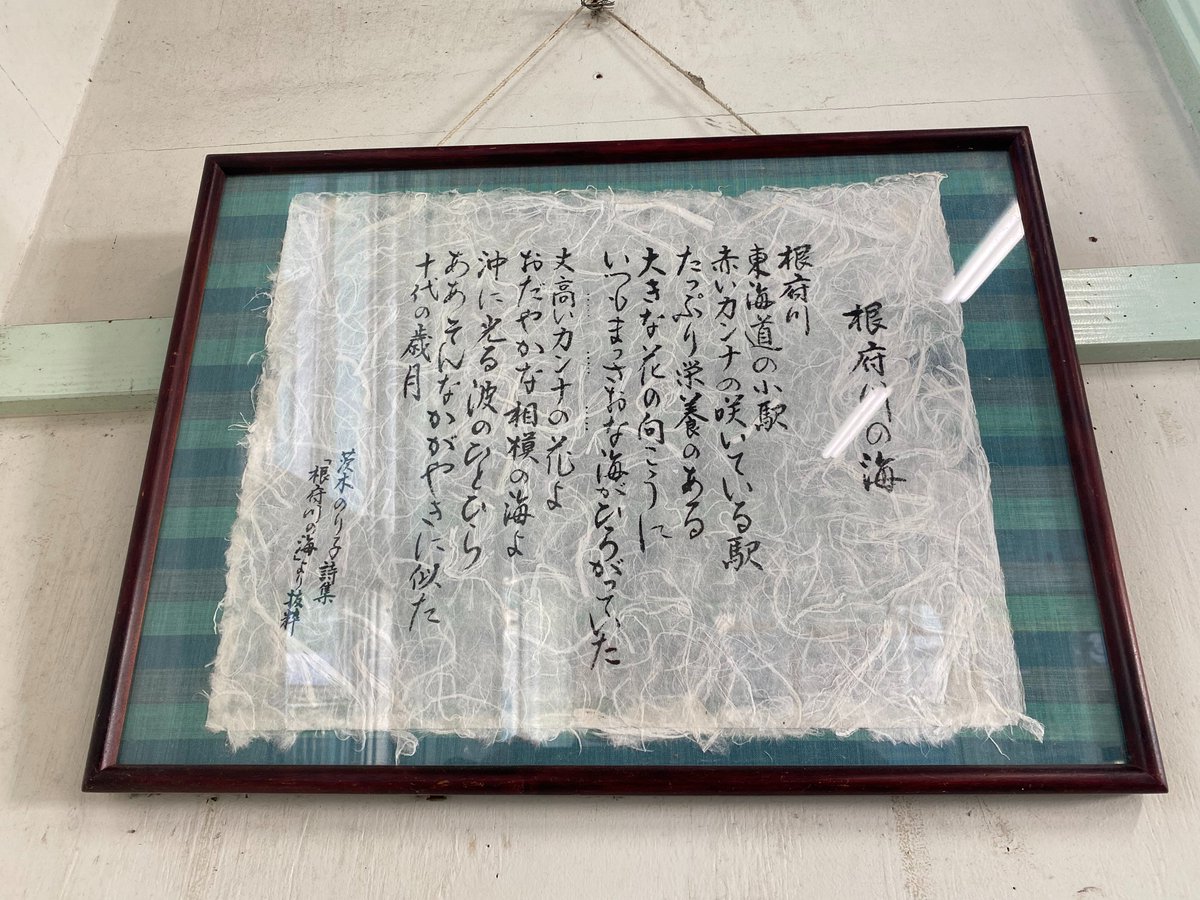 根府川の海
根府川
東海道の小駅
赤いカンナの咲いている駅
たっぷり栄養のある
大きな花の向こうに
いつもまっさおな海がひろがっていた
……………
丈高いカンナの花よ
おだやかな相模の海よ
沖に光る波のひとひら
ああそんなかがやきに似た
十代の歳月
茨木のり子詩集
「根府川の海」より抜粋